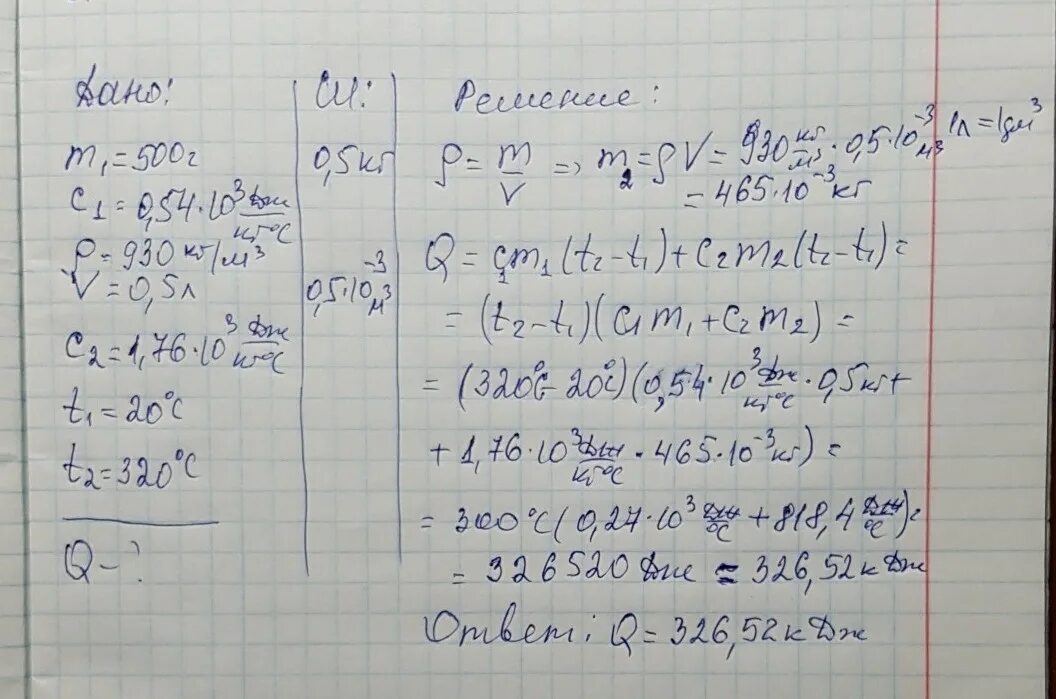 Дано:
m₁ = 500г
c₁ = 0,54·10³ Дж/кг°С
ρ = 930 кг/м³
V = 0,5л
c₂ = 1,76·10³ Дж/кг°С
t₁ = 20°С
t₂ = 320°С
Q - ?
СИ:
0,5кг
0,5·10⁻³ м³
Решение:
ρ = m/V => m₂ = ρV = 930 кг/м³ · 0,5·10⁻³ м³
1л = 1дм³
= 465·10⁻³ кг
Q = c₁m₁(t₂-t₁) + c₂m₂(t₂-t₁) =
= (t₂-t₁)(c₁m₁ + c₂m₂) =
= (320°С - 20°С)(0,54·10³ Дж/кг°С · 0,5кг +
+ 1,76·10³ Дж/кг°С · 465·10⁻³ кг) =
= 300°С(0,27·10³ Дж/°С + 818,4 Дж/°С) =
= 326520 Дж = 326,52 кДж
Ответ: Q = 326,52 кДж